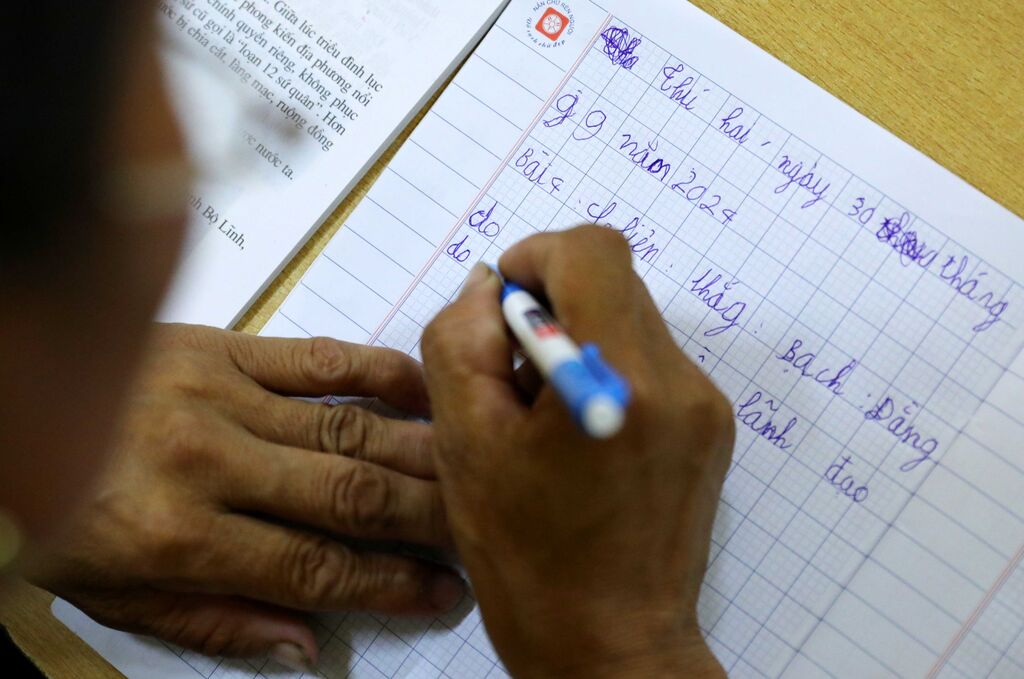 Giữa lúc triều đình lục
phong kiến địa phương nổi
chính quyền riêng, không phục
sử cũ gọi là “loạn 12 sứ quân”. Hơn
bị chia cắt, làng mạc, ruộng đồng
nước ta.
Bộ Lĩnh,
NẮN CHỮ RÈN NGƯỜI
Thứ hai, ngày 30 tháng
9 năm 2024
Bài 4: Chiến thắng Bạch Đằng
do
lãnh đạo
do